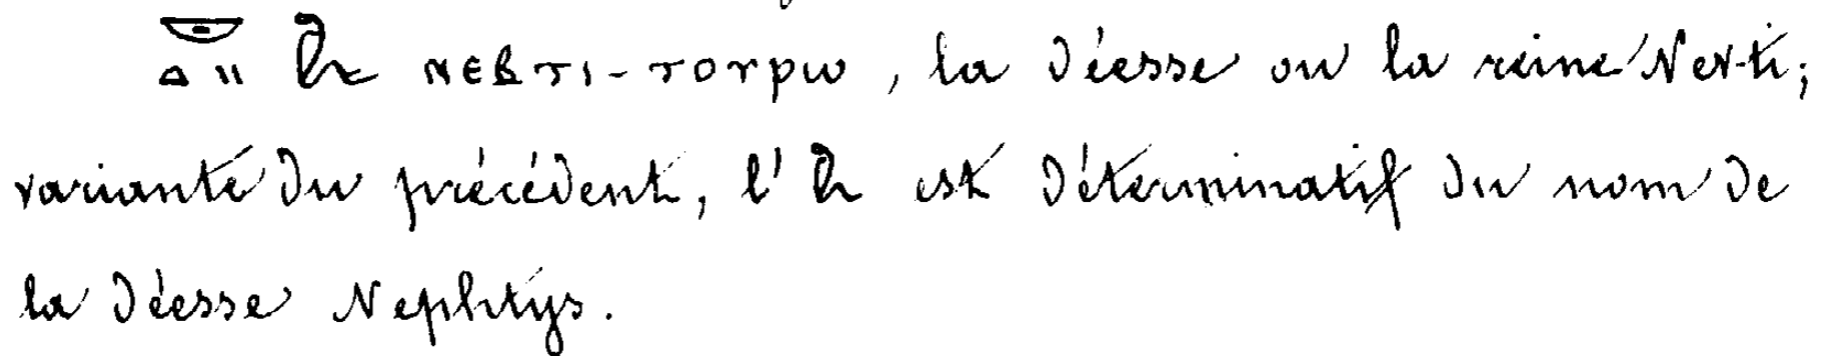 𓎟𓏏𓏭 𓆗 ⲛⲉⲃⲧⲓ-ⲧⲟⲩⲣⲱ, la déesse ou la reine Nev-ti;
variante du précédent, l' est déterminatif du nom de
la déesse Nephtys.